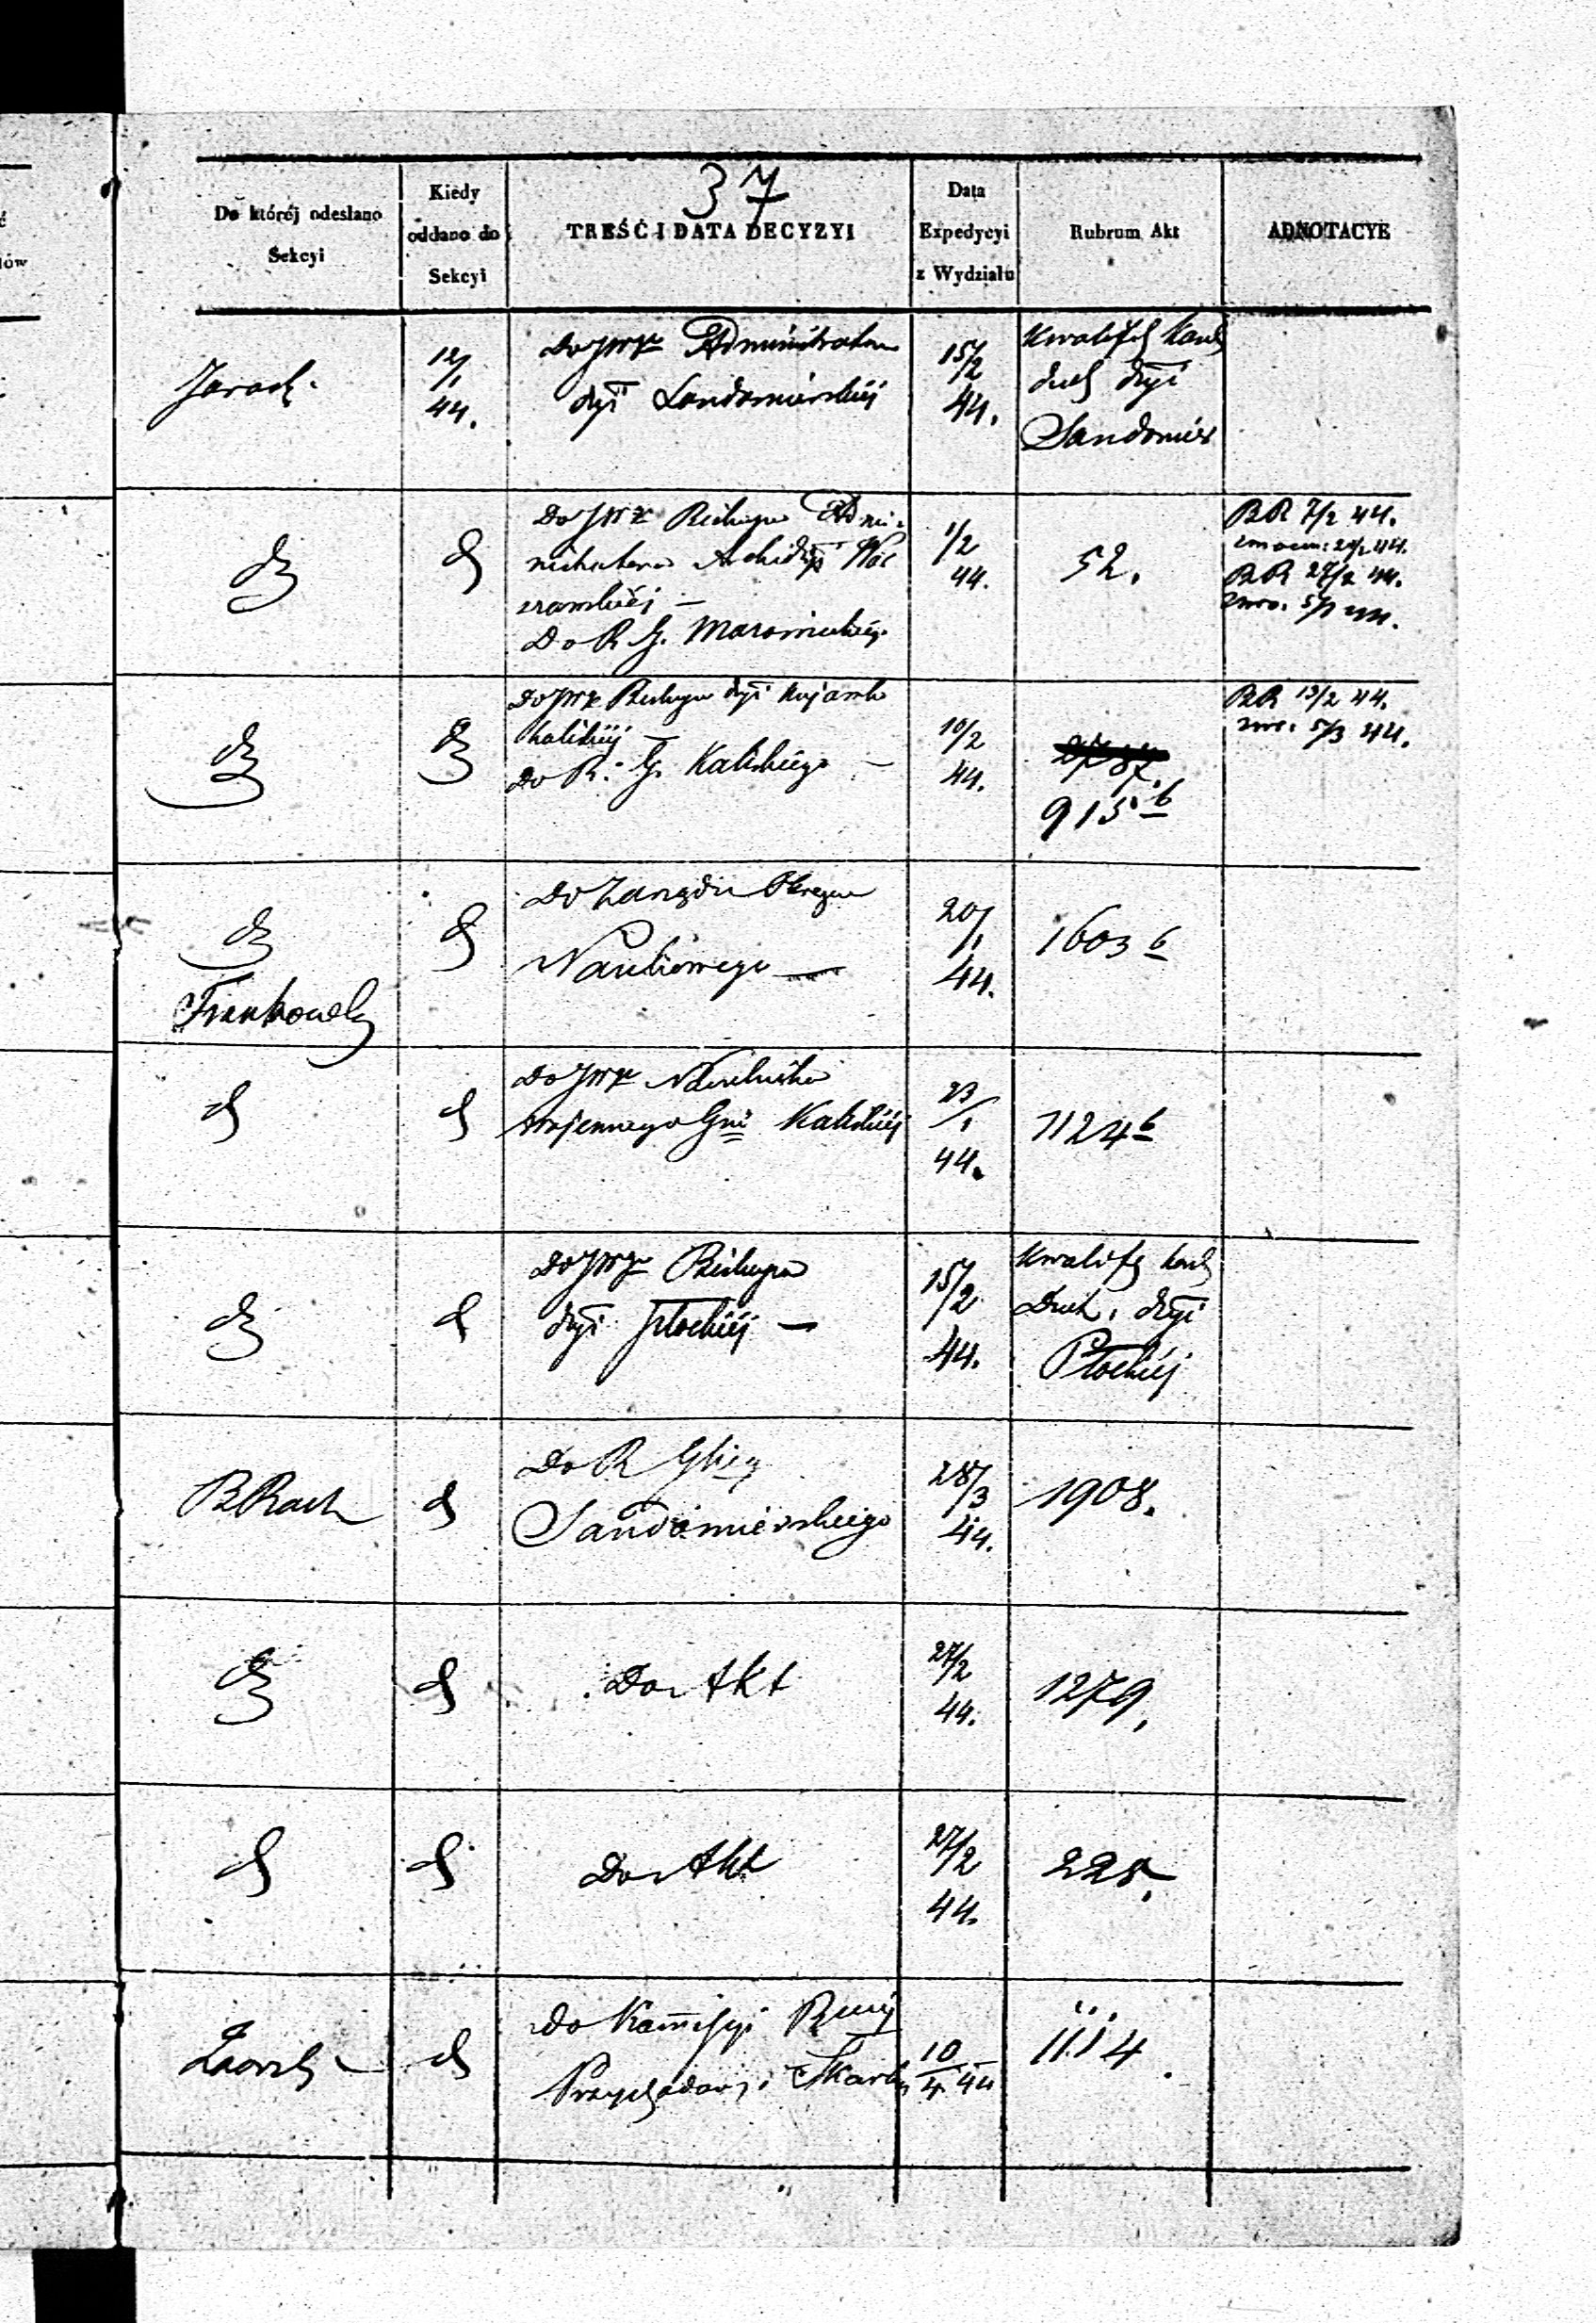 37
Do któréj odesłano Sekcyi
Kiedy oddano do Sekcyi
TREŚĆ I DATA DECYZYI
Data Expedycyi z Wydziału
Rubrum Akt
ADNOTACYE
Jarock.
12/1 44.
Do JWgo Administratora
dyi Sandomirskiéj
15/2 44.
Kwalifik kand
duch dyi
Sandomier
Do JWX Biskupa Admi-
nistratora Archidyi War
szawskiéj —
Do R. G. Mazowieckiego
1/2 44.
52.
RR 7/2 44.
RR 27/2 44.
Do JWX Biskupa dyi Kujawsko
kaliskiéj —
Do R. G. Kaliskiego —
10/2 44.
2787.
915 b
RR 13/2 44.
5/3 44.
Do Zarządu Okręgu
Naukowego —
20/1 44.
1603 b
Do JWgo Naczelnika
Wojennego Gnii Kaliskiéj
23/1 44.
1124 b
Do JWgo Biskupa
dyi Płockiéj —
15/2 44.
Kwalifik kand
Duch. dyi
Płockiéj
Do R Gkieg
Sandomierskiego
28/3 44.
1908.
Do Akt
27/2 44.
1279.
Do Akt
27/2 44.
225.
Do Kommissyi Rząj
Przychodów i Skarbu
10/4 44
1114.